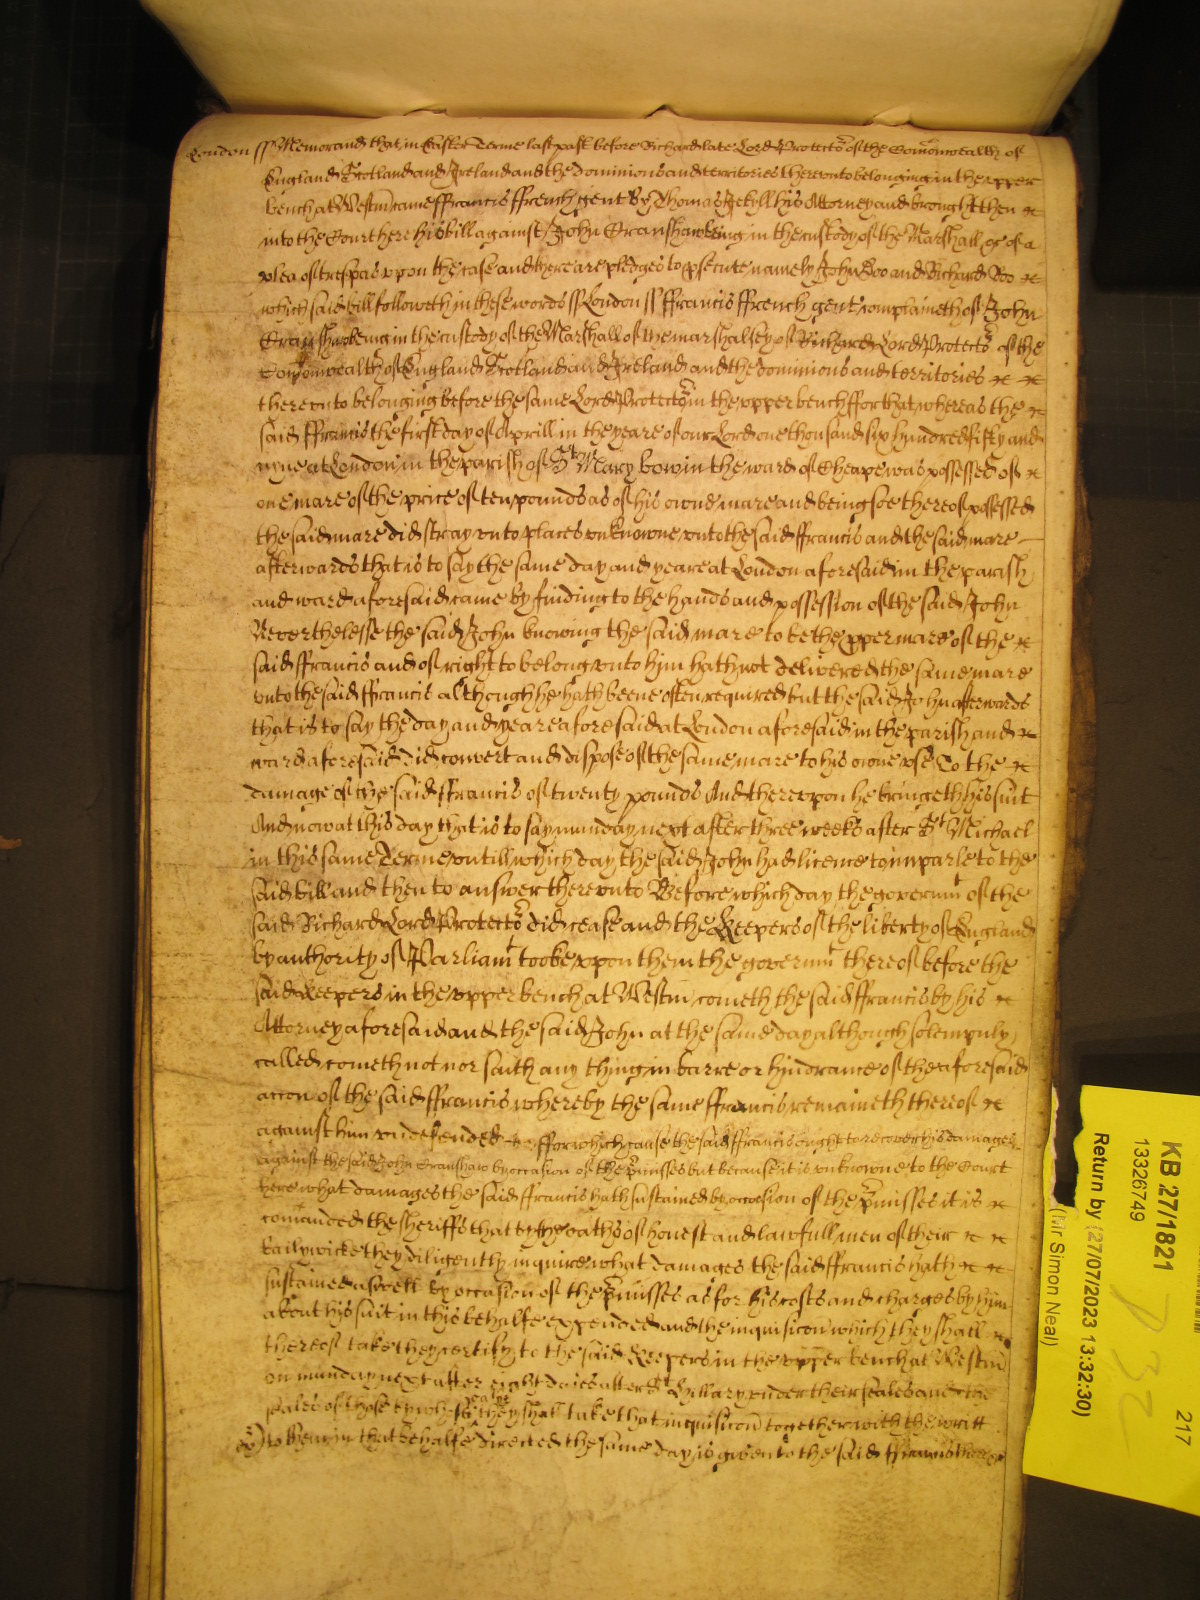 London ss Memorand that in Easter Terme last past before Richard late Lord Protector of the Comonwealth of
England Scotland and Ireland and the dominions and territories thereunto belonging in the upper
bench at Westm came ffrancis ffrench gent by Thomas Jekyll his Attorney and brought then
into the Court here his bill against John Cranshaw being in the custody of the Marshall &c of a
plea of trespas upon the case and there are pledges to psecute namely John Doo and Richard Roo
which said bill followeth in these words ss London ss ffrancis ffrench gent complaineth of John
Cranshaw being in the custody of the Marshall of the marshalsey of Richard Lord Protector of the
Comonwealth of England Scotland and Ireland and the dominions and territories
thereunto belonging before the same Lord Protector in the upper bench ffor that whereas the
said ffrancis the first day of Aprill in the yeare of our Lord one thousand six hundred fifty and
nyne at London in the parish of St Mary bow in the ward of Cheape was possessed of
one mare of the price of ten pounds as of his owne mare and being soe thereof possessed
the said mare did stray unto places unknowne unto the said ffrancis and the said mare
afterwards that is to say the same day and yeare at London aforesaid in the parish
and ward aforesaid came by finding to the hands and possession of the said John
Neverthelesse the said John knowing the said mare to be the pper mare of the
said ffrancis and of right to belong unto him hath not delivered the same mare
unto the said ffrancis although he hath beene often required but the said John afterwards
that is to say the day and yeare aforesaid at London aforesaid in the parish and
ward aforesaid did convert and dispose of the same mare to his owne use To the
damage of the said ffrancis of twenty pounds And thereupon he bringeth his suit
And now at this day that is to say munday next after three weeks after St Michael
in this same Terme untill which day the said John had licence to imparle to the
said bill and then to answer thereunto Before which day the governmt of the
said Richard Lord Protector did cease and the Keepers of the liberty of England
by authority of Parliamt tooke upon them the governmt thereof before the
said Keepers in the upper bench at Westm cometh the said ffrancis by his
Attorney aforesaid and the said John at the same day although solempnly
called cometh not nor saith any thing in barre or hindrance of the aforesaid
accon of the said ffrancis whereby the same ffrancis remaineth thereof
against him undefended ffor which cause the said ffrancis ought to recover his damages
against the said John Cranshaw by occasion of the pmisses but because it is unknowne to the Court
here what damages the said ffrancis hath sustained by occasion of the pmisses it is
comanded the sheriffs that by the oaths of honest and lawfull men of their
bailywicke they diligently inquire what damages the said ffrancis hath
sustained aswell by occasion of the pmisses as for his costs and charges by him
about his suit in this behalfe expended and the inquisicon which they shall
thereof take they certify to the said Keepers in the upper bench at Westm
on munday next after eight daies after St Hillary under their seales and the
seales of those by whose oathes they shall take that inquisicon together with the writt
to them in that behalfe directed the same day is given to the said ffrancis there &c
KB 27/1821
13326749
Return by (27/07/2023 13:32:30)
(Mr Simon Neal)
217
D32